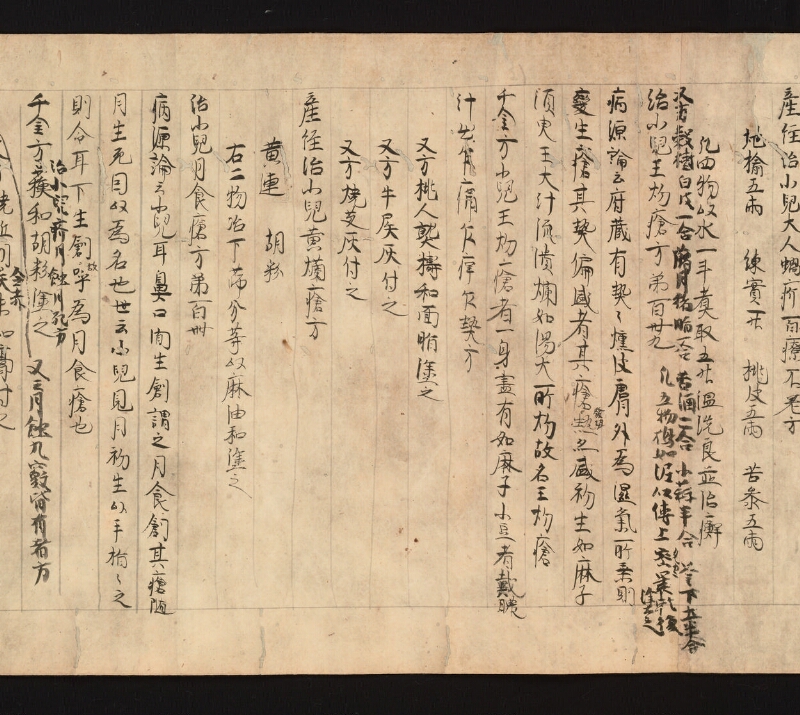 産経治小児大人蝎所百療不差方
地榆五両 練實一升 桃皮五両 苦參五両
凡四物以水一斗煮取五升温洗良並治癬
又方 穀樹白皮一合 臘月猪脂一合 苦酒二合 小蒜半合 釜下土半合
凡五物搗如泥以傅上
治小児王灼瘡方第百卅九
病源論云府蔵有熱々熏皮膚外為濕氣所乗則
變生瘡其熱偏盛者其瘡發熱亦盛初生如麻子
須臾王大汁流潰爛如湯火所灼故名王灼瘡
千金方小児王灼瘡者一身盡有如麻子小豆者戴膿
汁乍痛乍痒乍熱方
又方桃人熟搗和面脂塗之
又方牛屎灰付之
又方燒艾灰付之
産経治小児黄爛瘡方
黄連 胡粉
右二物治下篩分等以麻油和塗之
治小児月食瘡方第百卌
病源論云小児耳鼻口間生創謂之月食創其瘡随
月生死因以為名也世云小児見月初生以手指々之
則令耳下生創故呼為月食瘡也
治小児初月蝕耳方
千金方蘓和胡粉塗之 又云月蝕九竅皆有者方